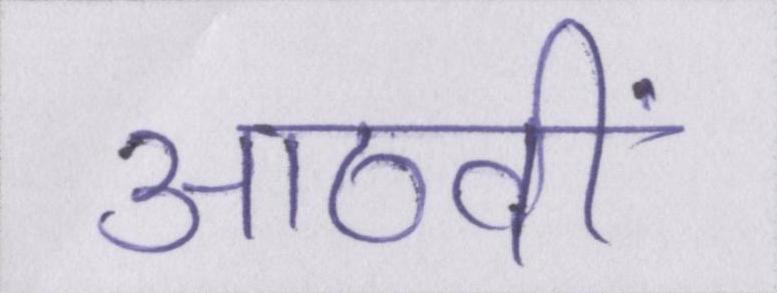 आठवीं